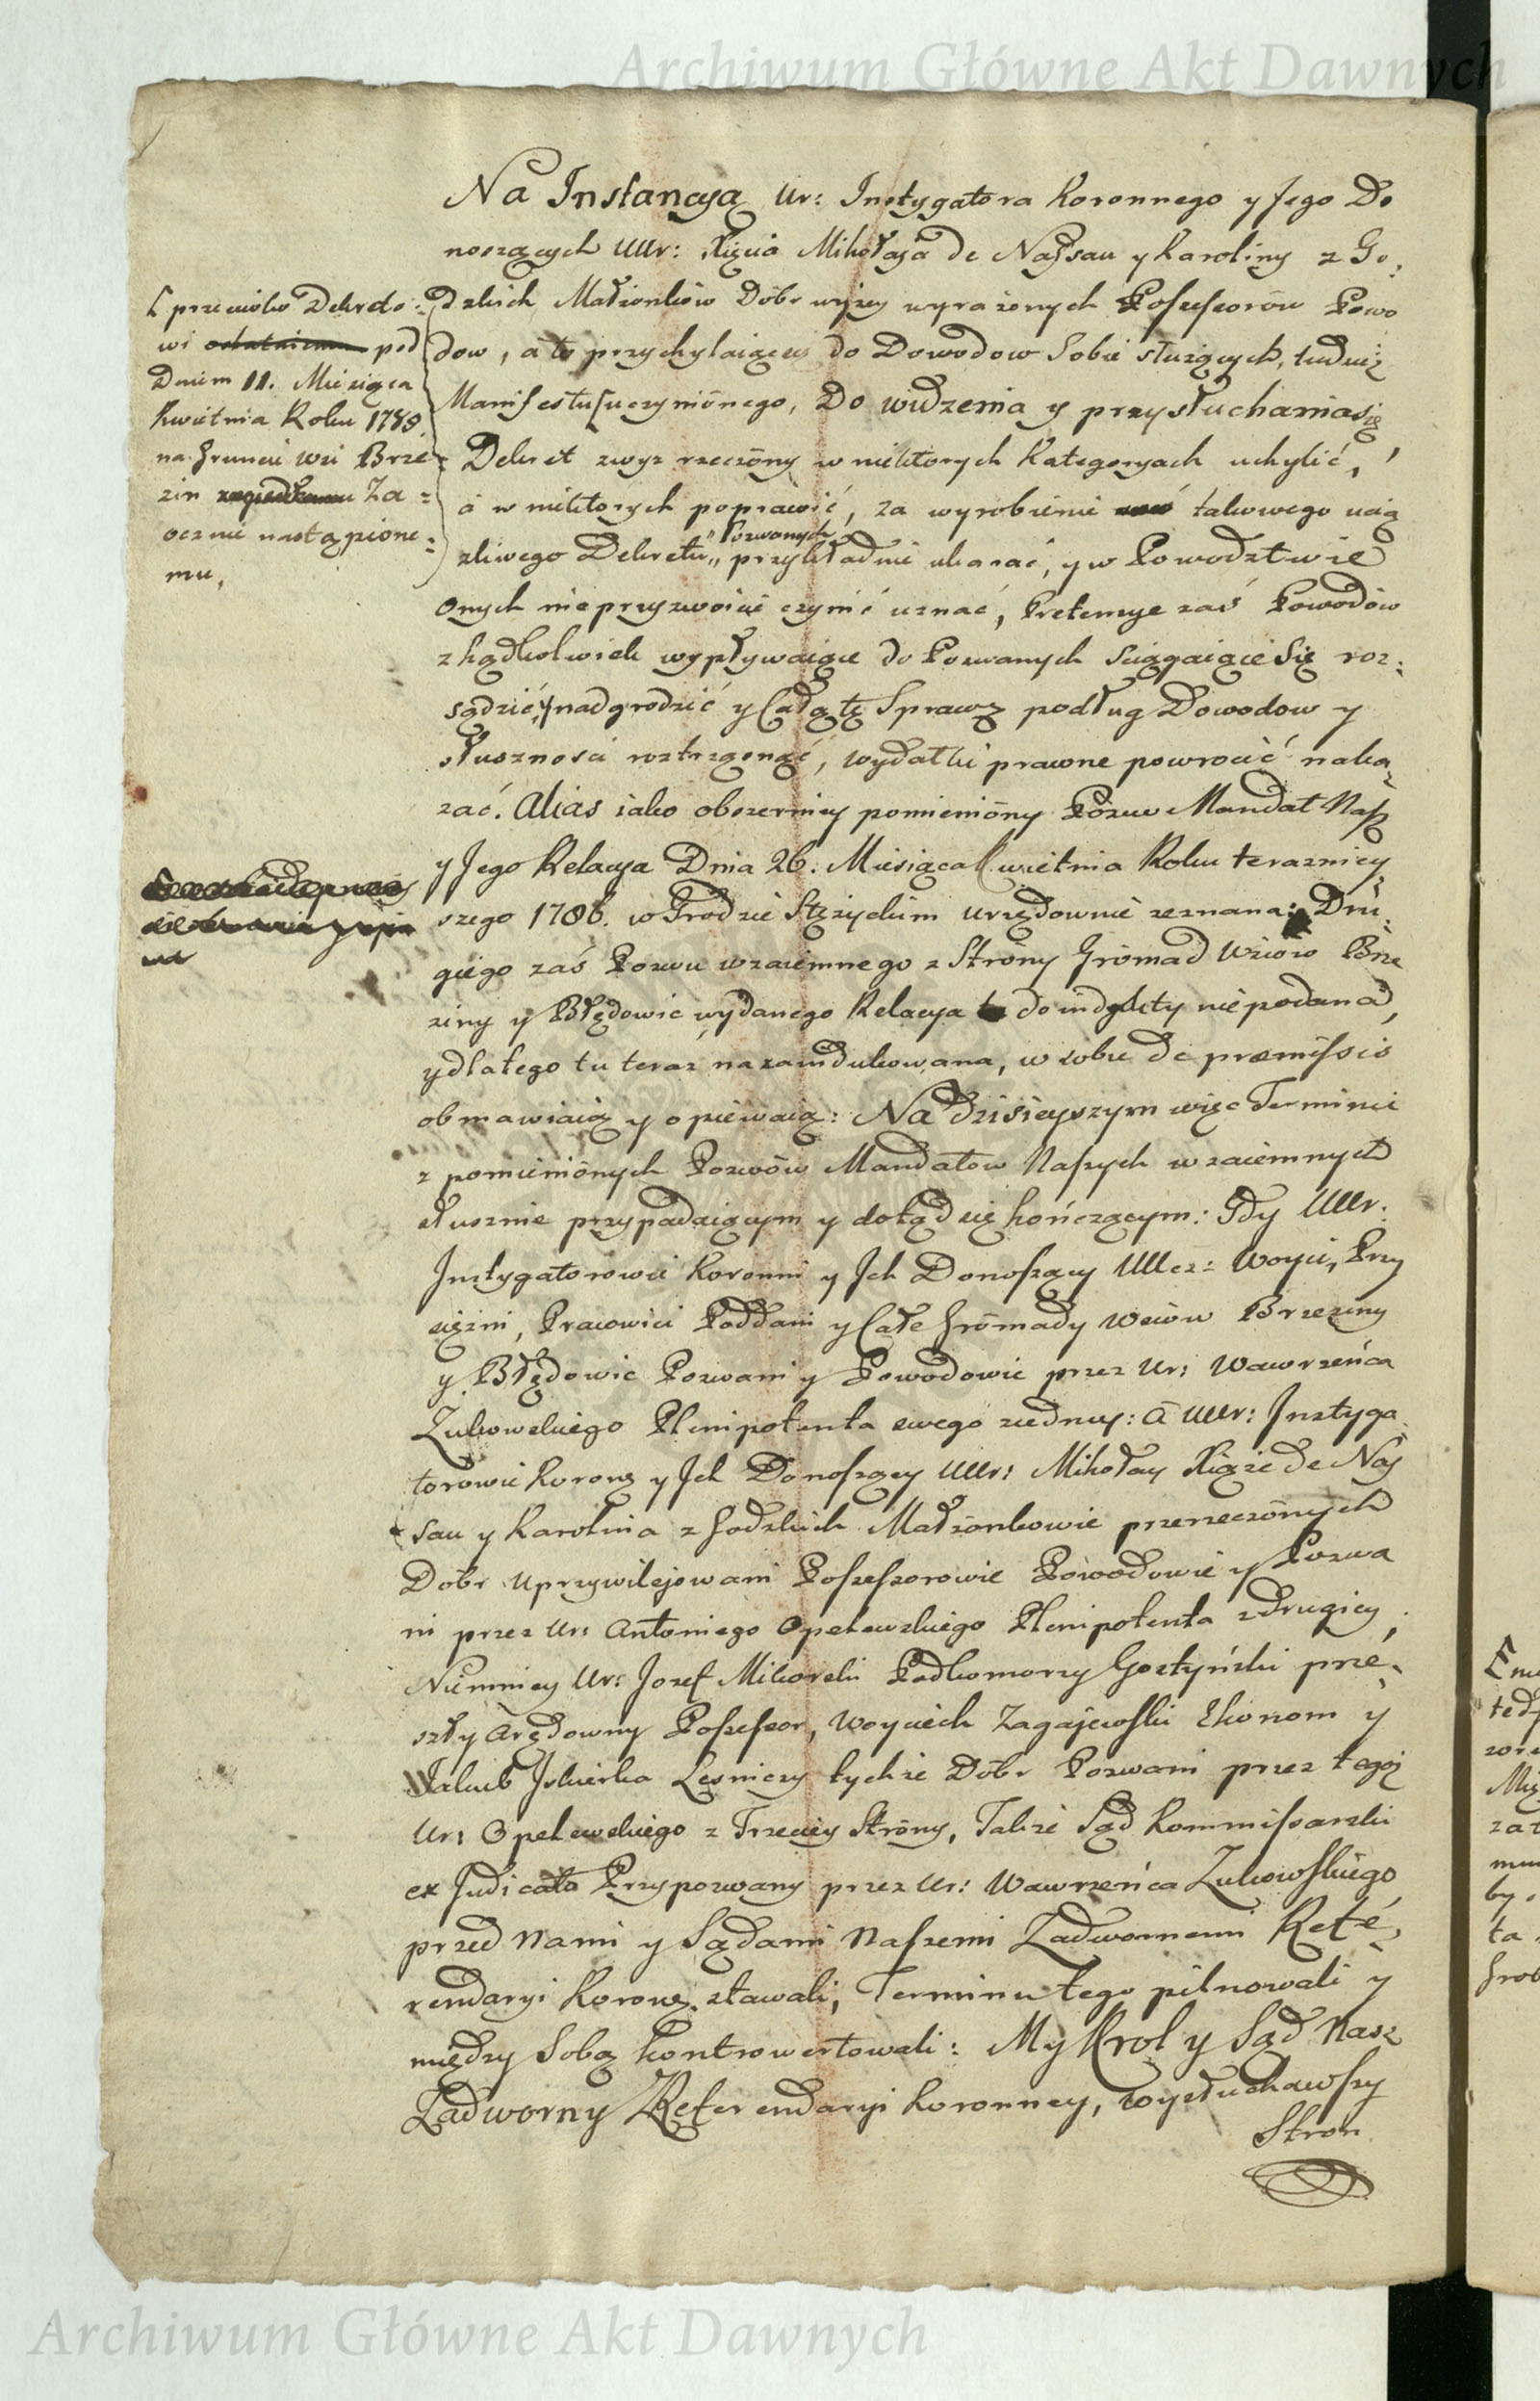 Archiwum Główne Akt Dawnych
Na Instancyą Ur: Instygatora Koronnego y Jego Do
noszących UUr: Xięcia Mikołaja de Nassau y Karoliny z Go:
dzkich Małżonków Dóbr wyżey wyrażonych Possessorów Powo
dow, a to przychylaiąc się do Dowodow Sobie służących, tudzież
Manifestu uczynionego, Do widzenia y przysłuchania się
Dekret zwyż rzeczony w niektorych Kategoryach uchylić,
a w niektorych poprawić, za wyrobienie takowego ucią
żliwego Dekretu Pozwanych przykładnie ukarać, y w Powodztwie
Onych nieprzyzwoicie czynić uznać, Pretensye zaś Powodów
zkądkolwiek wypływaiące do Pozwanych ściągaiące Się roz:
sądzić, y nadgrodzić y Całą tę Sprawę podług Dowodow y
słuszności roztrząsnąć, wydatki prawne powrocić naka
zać. Alias iako obszerniey pomieniony Pozew Mandat Nasz
y Jego Relacya Dnia 26. Miesiąca Kwietnia Roku teraźniey
szego 1786. w Grodzie Stężyckim urzędownie zeznana: Dru:
giego zaś Pozwu wzaiemnego z Strony Gromad Wsiow Brze
ziny y Błędowic wydanego Relacya do indykty nie podana,
y dlatego tu teraz na zaindukowana, w sobie de praemissis
obmawiaią y opiewaią: Na dzisieyszym więc Terminie
z pomienionych Pozwów Mandatow Naszych wzaiemnych
słusznie przypadaiącym y dotąd się kończącym: Gdy UUr:
Instygatorowie Koronni y Ich Donoszący UUcz: Woyci, Przy
siężni, Pracowici Poddani y Całe Gromady Wsiów Brzeziny
y Błędowic Pozwani y Powodowie przez Ur: Wawrzeńca
Zukowskiego Plenipotenta swego z iedney: a UUr: Instyga
torowie Koroną y Ich Donoszący UUr: Mikołay Xiąże de Nas
sau y Karolina z Godzkich Małżonkowie przerzeczonych
Dóbr uprzywilejowani Possessorowie Powodowie y Pozwa
ni przez Ur: Antoniego Opelewskiego Plenipotenta z drugiey,
Niemniey Ur: Jozef Mikorski Podkomorzy Gostyński prze:
szły Arędowny Possessor, Woyciech Zagajewski Ekonom y
Jakub Iskierka Leśniczy tychże Dóbr Pozwani przez tegoż
Ur: Opelewskiego z Trzeciey Strony, Także Sąd Kommissarski
ex Judicato Przypozwany przez Ur: Wawrzeńca Zukowskiego
przed Nami y Sądami Naszemi Zadwornemi Refe:
rendaryi Koronę. stawali, Terminu tego pilnowali y
między Sobą kontrowertowali: My Krol y Sąd Nasz
Zadworny Referendaryi Koronney, wysłuchawszy
Stron
przeciwko Dekreto:
wi ostatniemu pod
Dniem 11. Miesiąca
Kwietnia Roku 1785
na Gruncie Wsi Brze
zin Za=
ocznie nastąpione=
mu,
Archiwum Główne Akt Dawnych